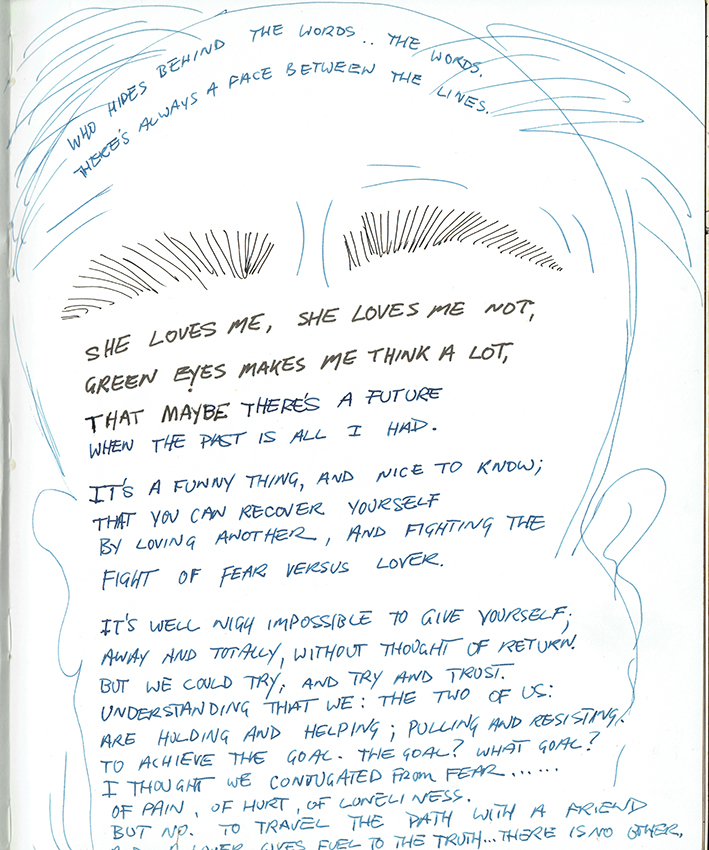 WHO HIDES BEHIND THE WORDS.. THE WORDS.
THERE'S ALWAYS A FACE BETWEEN THE LINES.
SHE LOVES ME, SHE LOVES ME NOT,
GREEN EYES MAKES ME THINK A LOT,
THAT MAYBE THERE'S A FUTURE
WHEN THE PAST IS ALL I HAD.
IT'S A FUNNY THING, AND NICE TO KNOW;
THAT YOU CAN RECOVER YOURSELF
BY LOVING ANOTHER, AND FIGHTING THE
FIGHT OF FEAR VERSUS LOVER.
IT'S WELL NIGH IMPOSSIBLE TO GIVE YOURSELF;
AWAY AND TOTALLY, WITHOUT THOUGHT OF RETURN.
BUT WE COULD TRY, AND TRY AND TRUST.
UNDERSTANDING THAT WE: THE TWO OF US:
ARE HOLDING AND HELPING; PULLING AND RESISTING.
TO ACHIEVE THE GOAL. THE GOAL? WHAT GOAL?
I THOUGHT WE CONJUGATED FROM FEAR......
OF PAIN, OF HURT, OF LONELINESS.
BUT NO. TO TRAVEL THE PATH WITH A FRIEND
AND A LOVER GIVES FUEL TO THE TRUTH...THERE IS NO OTHER.